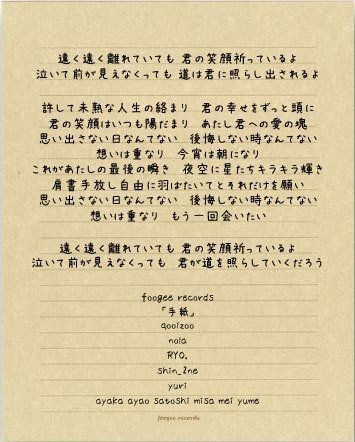 遠く遠く離れていても 君の笑顔祈っているよ
泣いて前が見えなくっても 道は君に照らし出されるよ
許して未熟な人生の絡まり 君の幸せをずっと頭に
君の笑顔はいつも陽だまり あたし君への愛の塊
思い出さない日なんてない 後悔しない時なんてない
想いは重なり 今宵は朝になり
これがあたしの最後の瞬き 夜空に星たちキラキラ輝き
肩書手放し自由に羽ばたいてとそれだけを願い
思い出さない日なんてない 後悔しない時なんてない
想いは重なり もう一回会いたい
遠く遠く離れていても 君の笑顔祈っているよ
泣いて前が見えなくっても 君が道を照らしていくだろう
foogee records
「手紙」
qooizoo
nola
RYO.
shin_2ne
yuri
ayaka ayao satoshi misa mei yume
foogee records